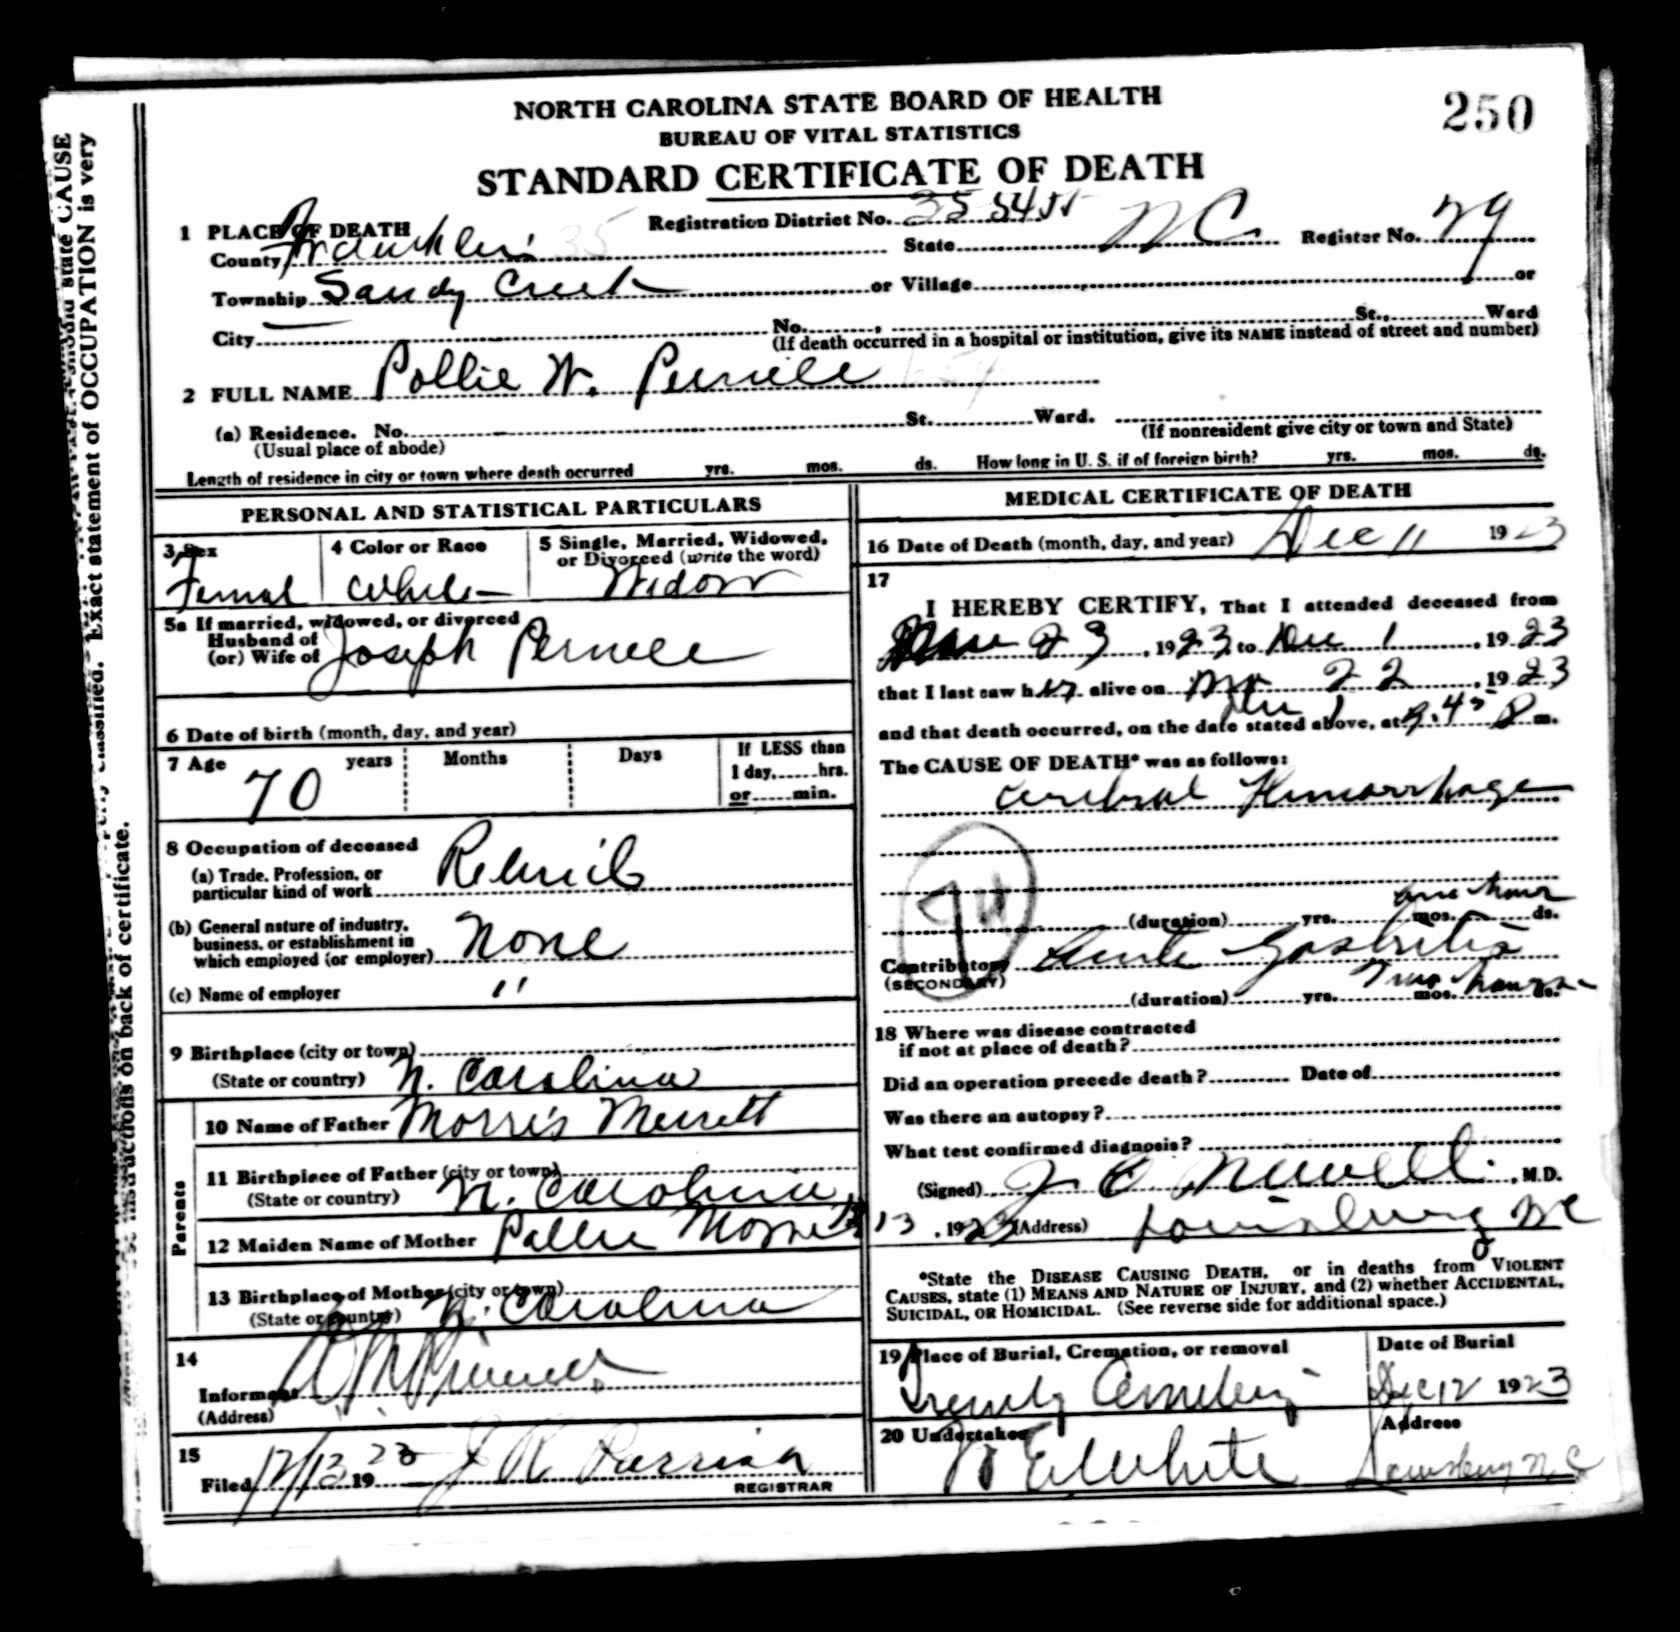 250
NORTH CAROLINA STATE BOARD OF HEALTH
BUREAU OF VITAL STATISTICS
STANDARD CERTIFICATE OF DEATH
1 PLACE OF DEATH
Registration District No. 35
County Franklin 35 State NC Register No. 79
Township Sandy Creek or Village or
City No. , St., Ward
(If death occurred in a hospital or institution, give its NAME instead of street and number)
2 FULL NAME Pollie W. Pernell
(a) Residence. No. St. Ward.
(Usual place of abode) (If nonresident give city or town and State)
Length of residence in city or town where death occurred yrs. mos. ds. How long in U. S. if of foreign birth? yrs. mos. ds.
PERSONAL AND STATISTICAL PARTICULARS
3 Sex 4 Color or Race 5 Single, Married, Widowed,
or Divorced (write the word)
Femal White Widow
5a If married, widowed, or divorced
Husband of
(or) Wife of Joseph Pernell
6 Date of birth (month, day, and year)
7 Age 70 years Months Days If LESS than
1 day, hrs.
or min.
8 Occupation of deceased
(a) Trade, Profession, or
particular kind of work
(b) General nature of industry,
business, or establishment in
which employed (or employer) None
(c) Name of employer "
9 Birthplace (city or town)
(State or country) N. Carolina
Parents
10 Name of Father Morris Merrett
11 Birthplace of Father (city or town)
(State or country) N. Carolina
12 Maiden Name of Mother Pallie
13 Birthplace of Mother (city or town)
(State or country) N. Carolina
14
Informant
(Address)
15
Filed 12/13 1923 J R
REGISTRAR
MEDICAL CERTIFICATE OF DEATH
16 Date of Death (month, day, and year) Dec 11 1923
17
I HEREBY CERTIFY, That I attended deceased from
23, 1923 to Dec 1, 1923
that I last saw her alive on 22, 1923
and that death occurred, on the date stated above, at 9.45 P m.
The CAUSE OF DEATH* was as follows:
Cerebral Hemorrhage
one hour
(duration) yrs. mos. ds.
Contributory Acute Gastritis
(SECONDARY)
(duration) yrs. mos. ds.
18 Where was disease contracted
if not at place of death?
Did an operation precede death? Date of
Was there an autopsy?
What test confirmed diagnosis?
(Signed) Newell, M.D.
13, 1923 (Address) Louisburg NC
*State the DISEASE CAUSING DEATH, or in deaths from VIOLENT
CAUSES, state (1) MEANS AND NATURE OF INJURY, and (2) whether ACCIDENTAL,
SUICIDAL, OR HOMICIDAL. (See reverse side for additional space.)
19 Place of Burial, Cremation, or removal Date of Burial
Cemetery Dec 12 1923
20 Undertaker Address
White Louisburg N C
state CAUSE
Exact statement of OCCUPATION is very
classified.
instructions on back of certificate.